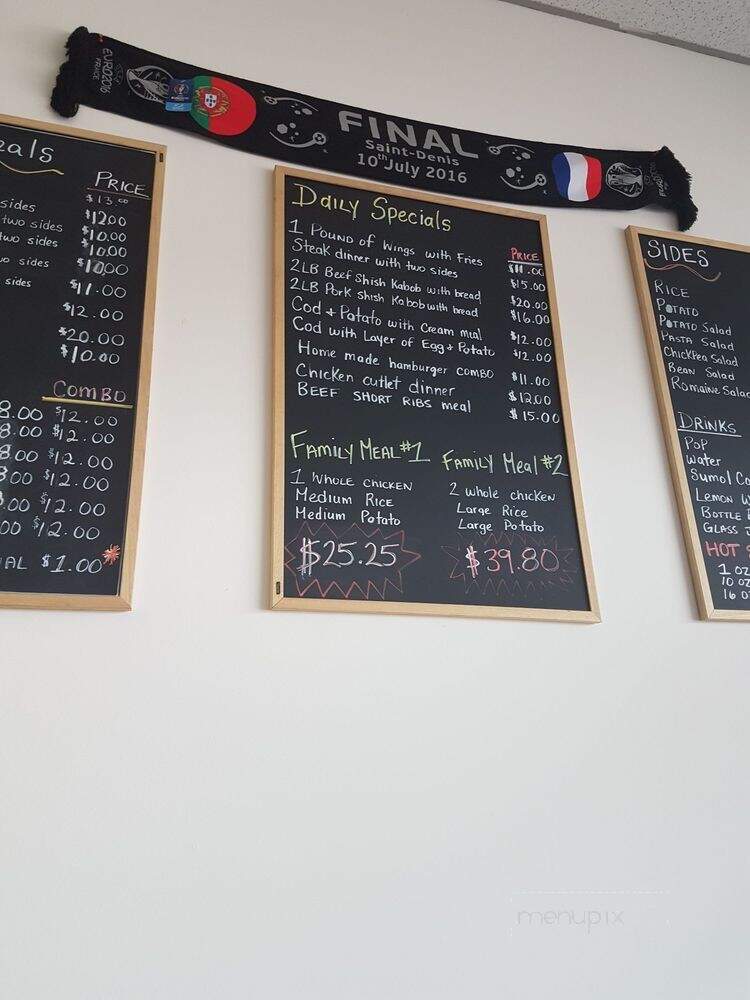 EURO2016
FRANCE
FINAL
Saint-Denis
10th July 2016
eals
PRICE
$13.00
sides $12.00
two sides $10.00
two sides $10.00
sides $10.00
sides $11.00
$12.00
$20.00
$10.00
COMBO
8.00 $12.00
8.00 $12.00
8.00 $12.00
00 $12.00
00 $12.00
00 $12.00
AL $1.00
Daily Specials
PRICE
1 POUND OF WINGS with FRIES $11.00
Steak dinner with two sides $15.00
2LB Beef Shish Kabob with bread $20.00
2LB Pork shish Kabob with bread $16.00
Cod + Potato with Cream meal $12.00
Cod with Layer of Egg + Potato $12.00
Home made hamburger COMBO $11.00
Chicken cutlet dinner $12.00
BEEF SHORT RIBS meal $15.00
FAMILY MEAL #1
1 WHOLE CHICKEN
Medium RICE
Medium Potato
$25.25
FAMILY Meal #2
2 whole chicken
Large Rice
Large Potato
$39.80
SIDES
RICE
POTATO
POTATO Salad
PASTA Salad
ChickPea Salad
Bean Salad
Romaine Salad
DRINKS
POP
water
Sumol
LEMON
BOTTLE
GLASS
HOT
1 OZ
10 OZ
16 OZ
menupix